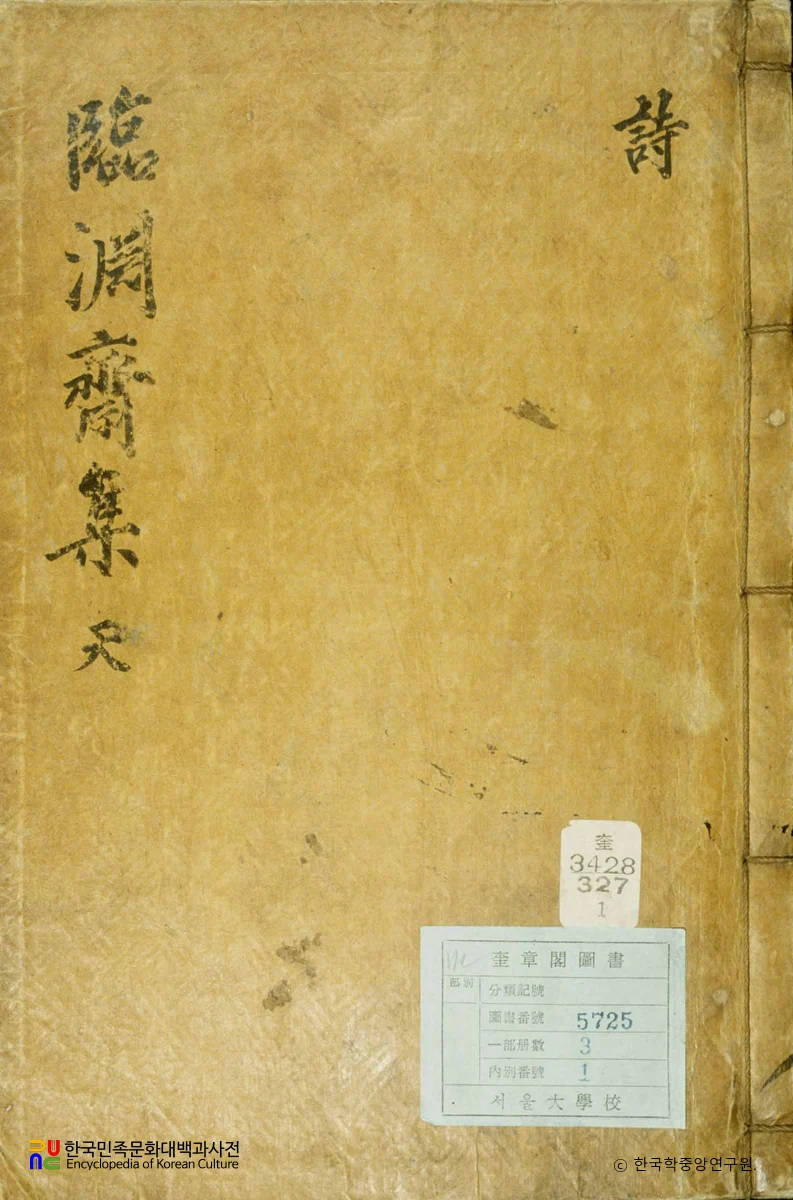 詩
臨淵齋集 天
奎
3428
327
1
奎章閣圖書
部別
分類記號
圖書番號 5725
一部册數 3
內別番號 1
서울大學校
한국민족문화대백과사전
Encyclopedia of Korean Culture
© 한국학중앙연구원.